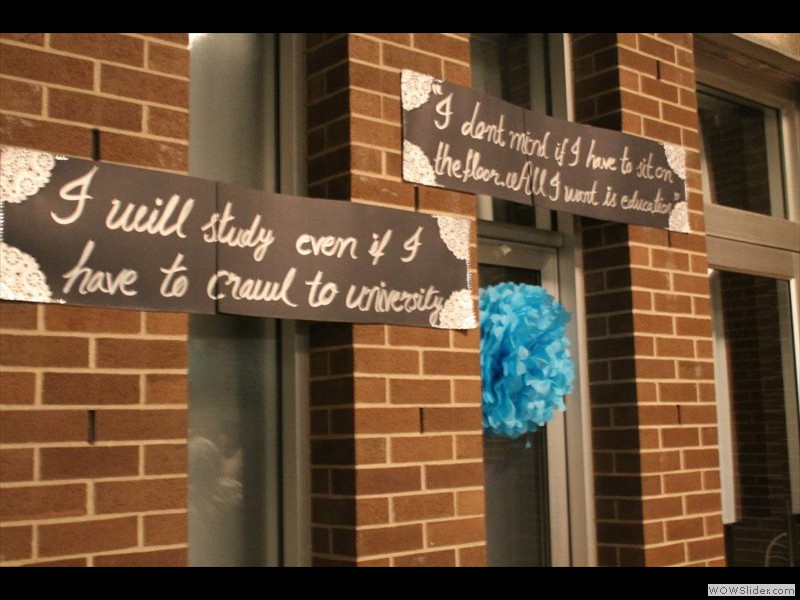 I will study even if I
have to crawl to university
"I dont mind if I have to sit on
the floor. All I want is education"
WOWSlider.com